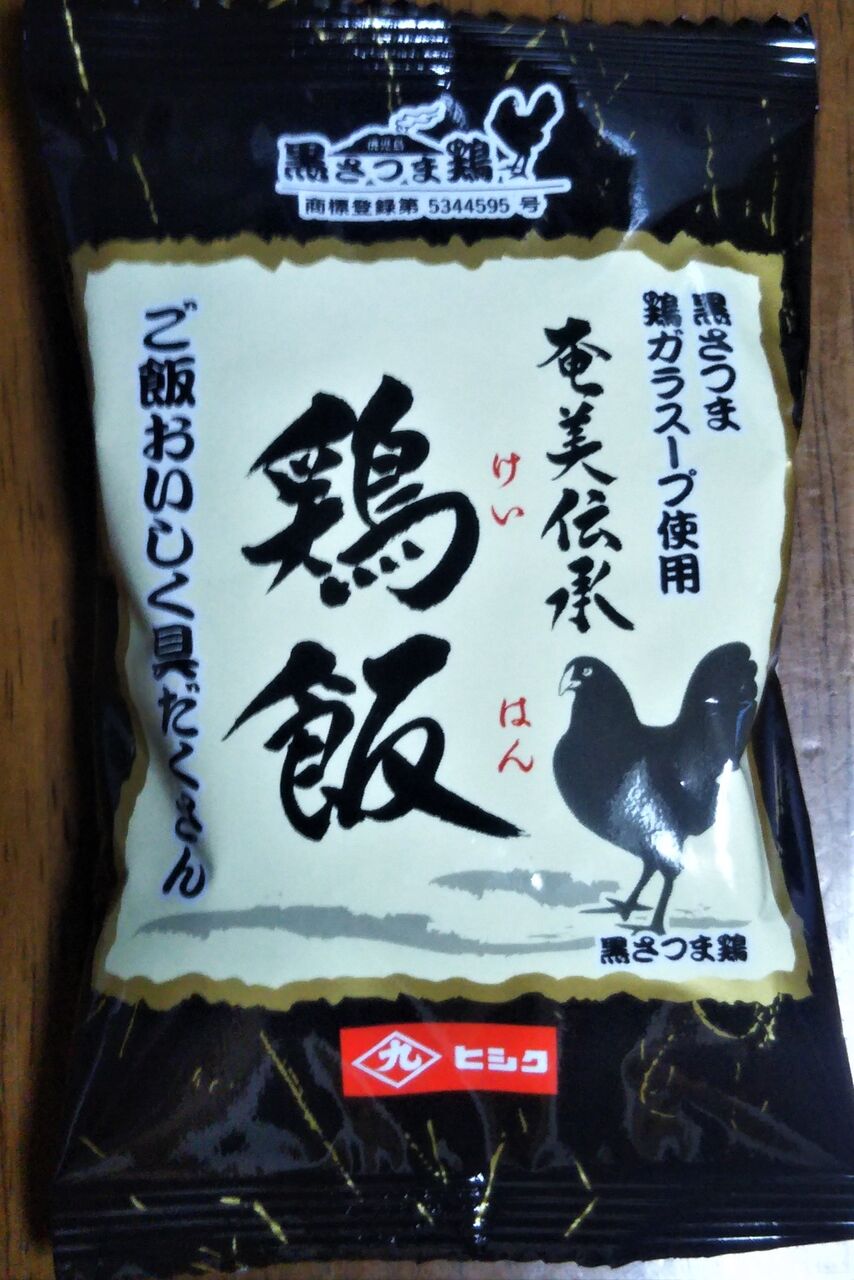 鹿児島
黒さつま鶏
商標登録第 5344595 号
黒さつま
鶏ガラスープ使用
奄美伝承
けい はん
鶏飯
ご飯おいしく具だくさん
黒さつま鶏
九 ヒシク